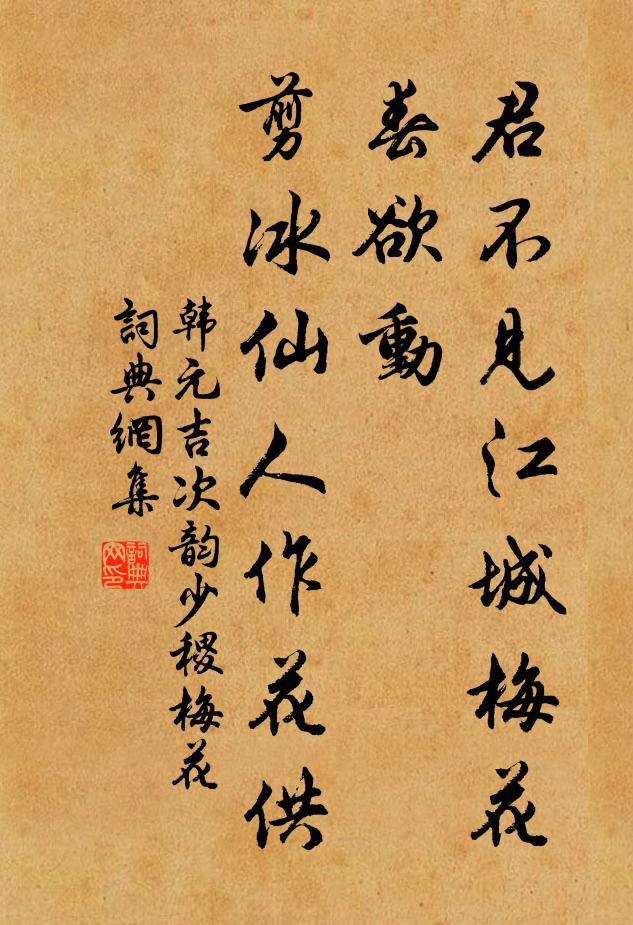 君不見江城梅花
春欲動
剪冰仙人作花供
韩元吉次韵少稷梅花
詞典網集
詞典
网印